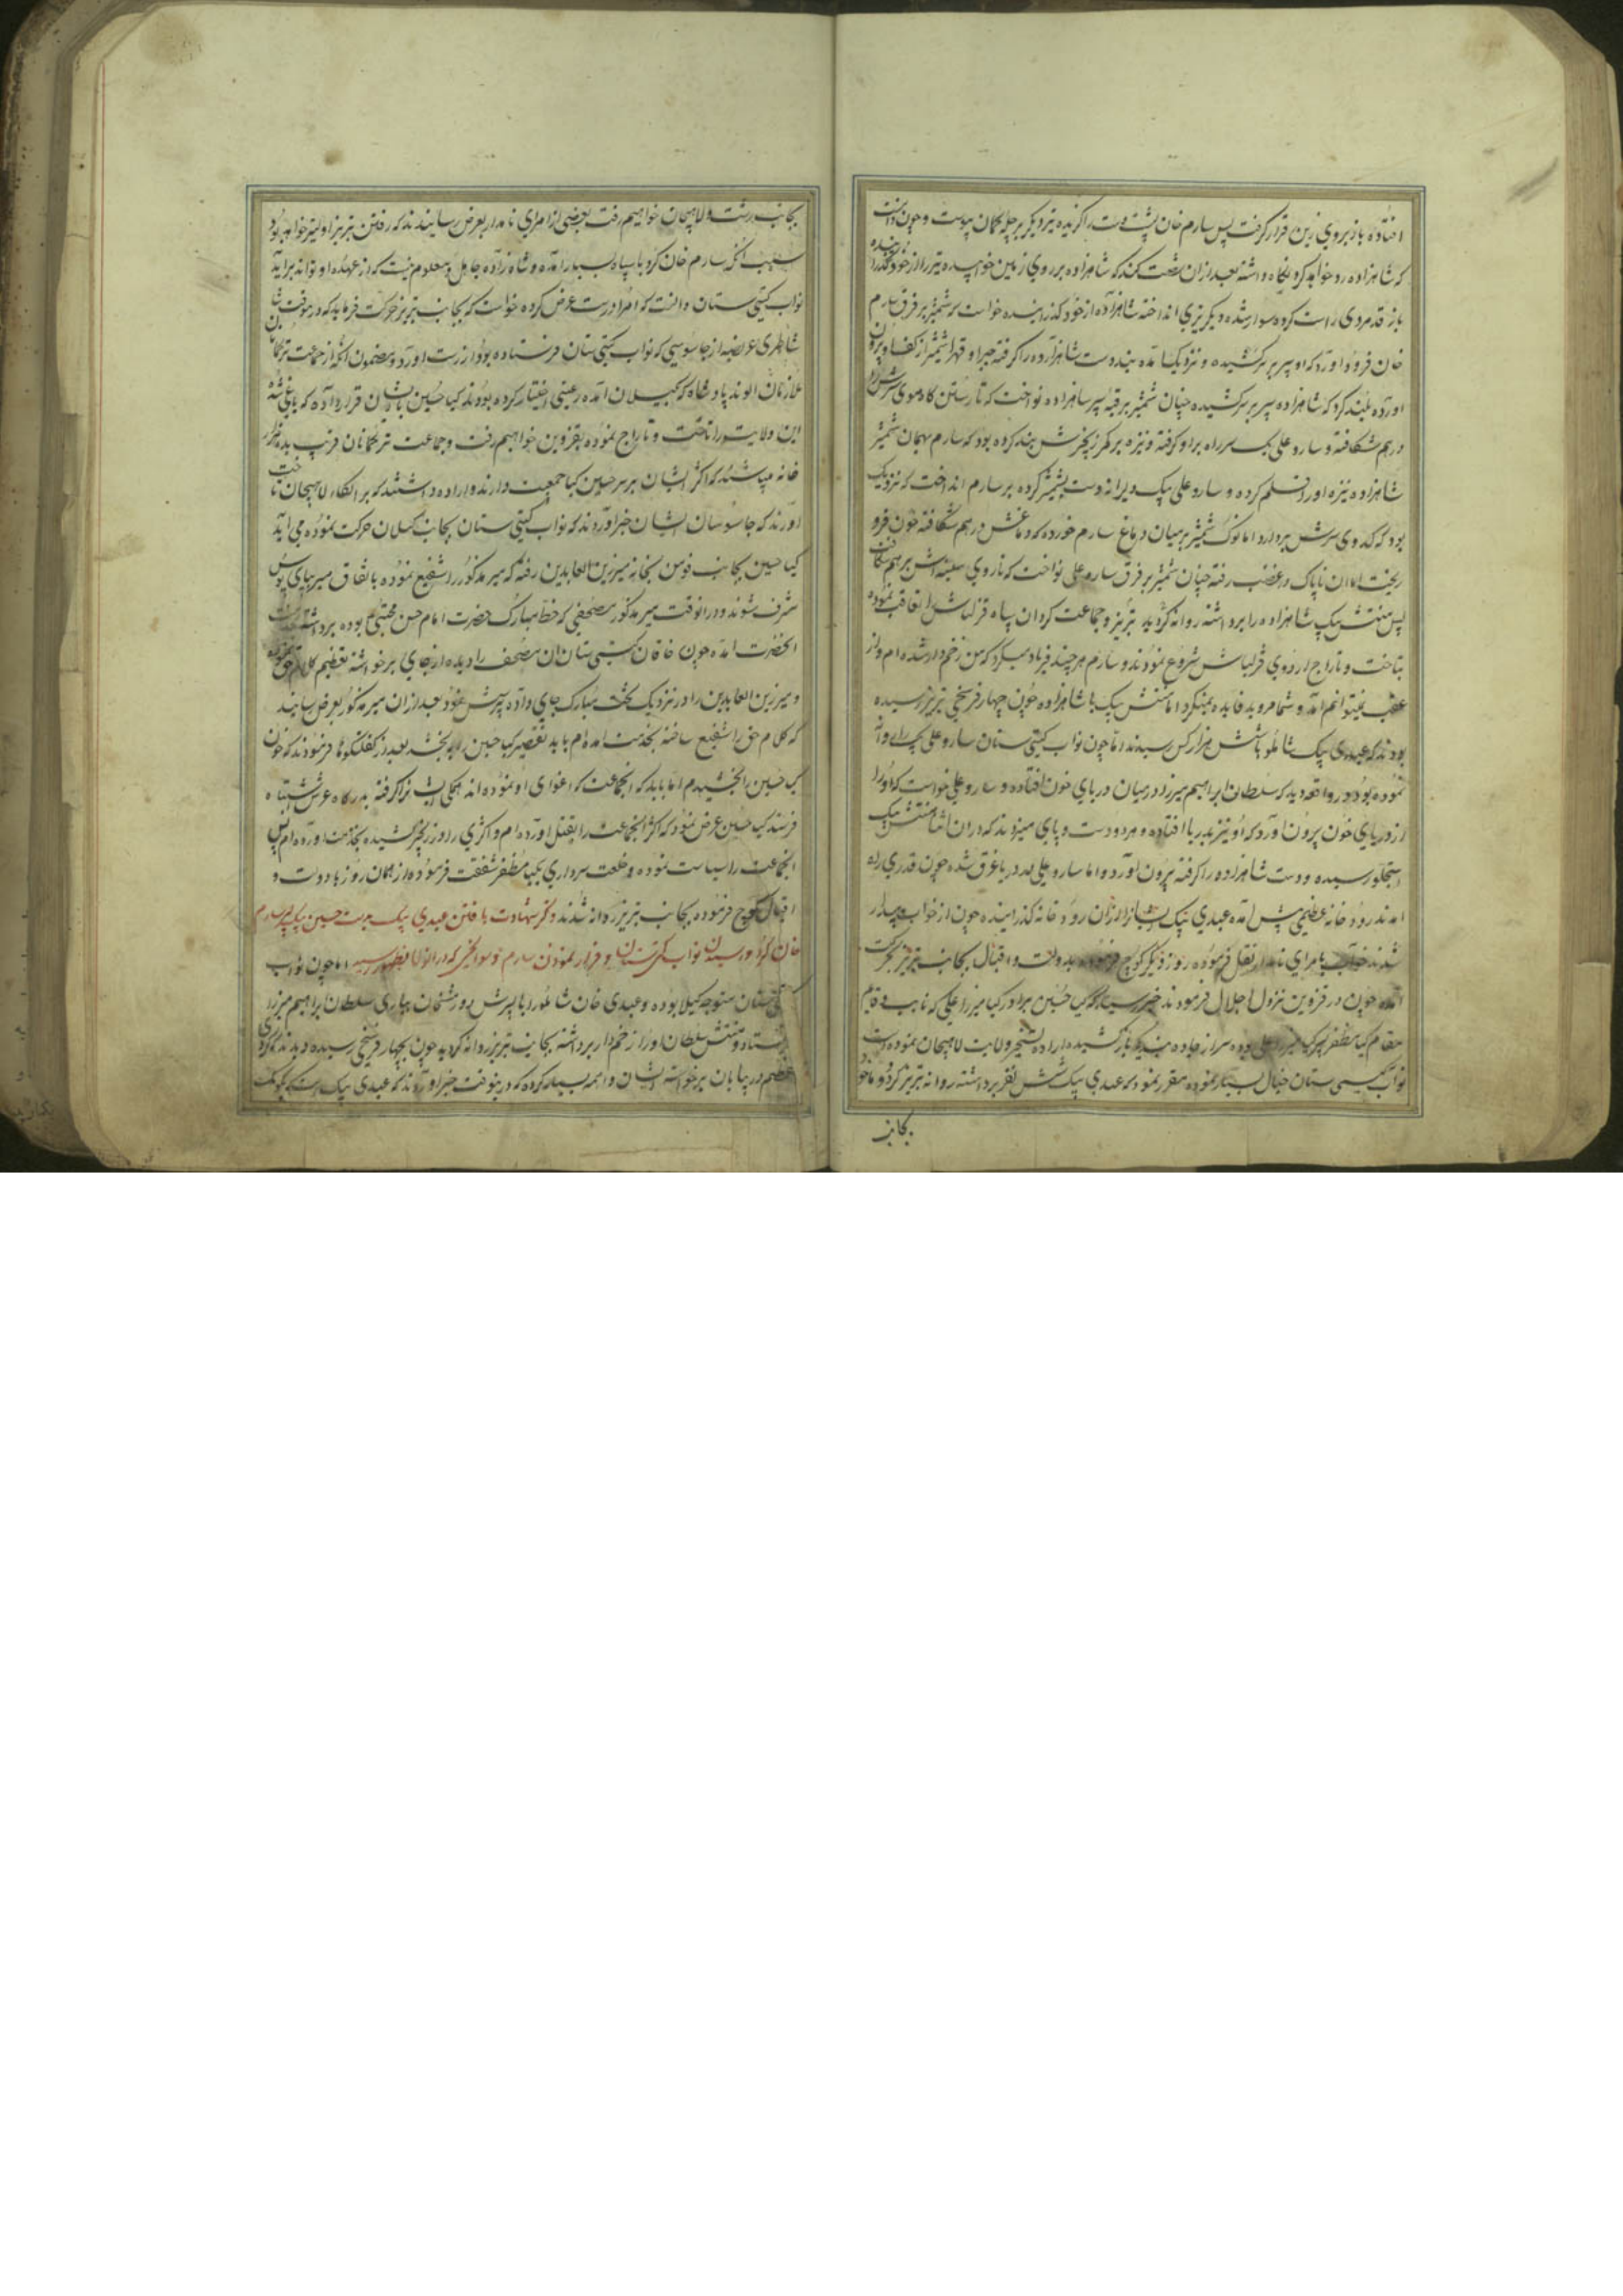 افتاده باز بروی زین قرار گرفت پس سارم خان پشت دست را گزیده تیر دیگر بر چله کمان پیوست و چون دانست
که شاهزاده رد خواهد کرد نگاه داشته بعد از آن شصت کند که شاهزاده بر روی زمین خوابیده تیر را از خود گذرانیده
باز قد مردی راست کرده سوار شده دیگر تیری انداخته شاهزاده از خود گذرانیده خواست که شمشیر بر فرق سارم
خان فرود آورد که او سپر بر سر کشیده و نزدیک آمده بند دست شاهزاده را گرفته جبرا و قهرا شمشیر از کف او بیرون
آورده بلند کرد که شاهزاده سپر بر سر کشیده چنان شمشیر بر قبه سپر شاهزاده نواخت که تا رستن گاه موی سرش را
در هم شکافته و سارو علی بیک سر راه بر او گرفته و نیزه بر کمر زنجیرش بند کرده بود که سارم بهمان شمشیر
شاهزاده نیزه او را قلم کرده و سارو علی بیک دلیرانه دست بشمشیر کرده بر سارم انداخت که نزدیک
بود که کدوی سرش بردارد اما نوک شمشیر بر میان دماغ سارم خورده که دماغش در هم شکافته خون فرو
ریخت اما آن ناپاک در غضب رفته چنان شمشیر بر فرق سارو علی نواخت که تا روی سینه اش بر هم شکافت
پس منتش بیک شاهزاده را برداشته روانه گردید به تبریز و جماعت کردان سپاه قزلباش را تعاقب نموده
بتاخت و تاراج اردوی قزلباش شروع نمودند و سارم هر چند فریاد میکرد که من زخم دار شده ام و از
عقب نمیتوانم آمد و شما مروید فایده نمیکرد اما منتش بیک با شاهزاده چون چهار فرسخی تبریز رسیده
بودند که عبدی بیک شاملو با شش هزار کس رسیدند اما چون نواب گیتی ستان سارو علی بیک را روانه
نموده بود در واقعه دید که سلطان ابراهیم میرزا در میان دریای خون افتاده و سارو علی خواست که او را
از دریای خون بیرون آورد که او نیز بدریا افتاده و هر دو دست و پای میزدند که در آن اثنا منتش بیک
استجلو رسیده و دست شاهزاده را گرفته بیرون آورد و اما سارو علی در دریا غرق شده چون قدری راه
آمدند رودخانه عظیمی پیش آمده عبدی بیک شاهزاده را از آن رودخانه گذرانیده چون از خواب بیدار
شدند خواب را بامرای نامدار نقل فرموده روز دیگر کوچ فرموده بدولت و اقبال بجانب تبریز حرکت
آمده چون در قزوین نزول اجلال فرمودند خبر رسید که کیا حسین برادر کیا میرزا علی که نایب و قایم
مقام کیا مظفر پسر کیا میرزا علی بوده سر از جاده بندگی باز کشیده اراده تسخیر ولایت لاهیجان نموده است
نواب گیتی ستان خیال بسیار نموده مقرر نمود که عبدی بیک شش نفر برداشته روانه تبریز گردد و ما خود
بجانب
بجانب رشت و لاهیجان خواهیم رفت بعضی از امرای نامدار بعرض رسانیدند که رفتن تبریز اولیتر خواهد بود
بسبب آنکه سارم خان کرد با سپاه بسیار آمده و شاهزاده جاهل و معلوم نیست که از عهده او تواند برآید
نواب گیتی ستان دانست که امرا درست عرض کرده خواست که بجانب تبریز حرکت فرماید که در همان وقت
شاطری عریضه از جاسوسی که نواب گیتی ستان فرستاده بود از رشت آورد و مضمون آنکه از جماعت ترکمانان
ملازمان الوند پادشاه که بگیلان آمده رعیتی اختیار کرده بودند کیا حسین با ایشان قرار داده که یاغی شده
این ولایت را تاخت و تاراج نموده بقزوین خواهیم رفت و جماعت ترکمانان قریب بده هزار
خانه میباشند که اکثر ایشان بر سر حسین کیا جمعیت دارند و اراده داشتند که بر الکاء لاهیجان تاخت
آورند که جاسوسان ایشان خبر آوردند که نواب گیتی ستان بجانب گیلان حرکت نموده می آید
کیا حسین بجانب فومن بخانه میر زین العابدین رفته که میر مذکور را شفیع نموده باتفاق میر بپای بوس
مشرف شوند و در آن وقت میر مذکور مصحفی که خط مبارک حضرت امام حسن مجتبی بوده برداشته بخدمت
آنحضرت آمده چون خاقان گیتی ستان آن مصحف را دیده از جای برخواسته تعظیم کلام حق نموده
و میر زین العابدین را در نزدیک تخت مبارک جای داده پرسش نمود بعد از آن میر مذکور بعرض رسانید
که کلام حق را شفیع ساخته بخدمت آمده ام باید تقصیر کیا حسین را بمن بخشد بعد از گفتگوها فرمودند که چون
کیا حسین را بخشیدم اما باید که آن جماعت که اغوای او نموده اند همگی ایشان را گرفته بدرگاه عرش اشتباه
فرستد کیا حسین عرض نمود که اکثر آن جماعت را بقتل آورده ام و اکثری را در زنجیر کشیده بخدمت آورده ام پس
آن جماعت را سیاست نموده و خلعت سرداری بکیا مظفر شفقت فرموده از همان روز با دولت و
اقبال کوچ فرموده بجانب تبریز روانه شدند ذکر شهادت یافتن عبدی بیک بدست حسین بیک پسر سارم
خان کرد و رسیدن نواب گیتی ستان و فرار نمودن سارم و سوانحی که در آن اوان بظهور رسید اما چون نواب
گیتی ستان متوجه گیلان بوده و عبدی خان شاملو را با پسرش دورمش خان بیاری سلطان ابراهیم میرزا
فرستاد و منتش سلطان او را زخم دار برداشته بجانب تبریز روانه گردید چون بچهار فرسخی رسیده دیدند که گردی
عظیم در بیابان برخواسته ایشان واهمه بسیار کرده که در این وقت خبر آوردند که عبدی بیک است که بکومک